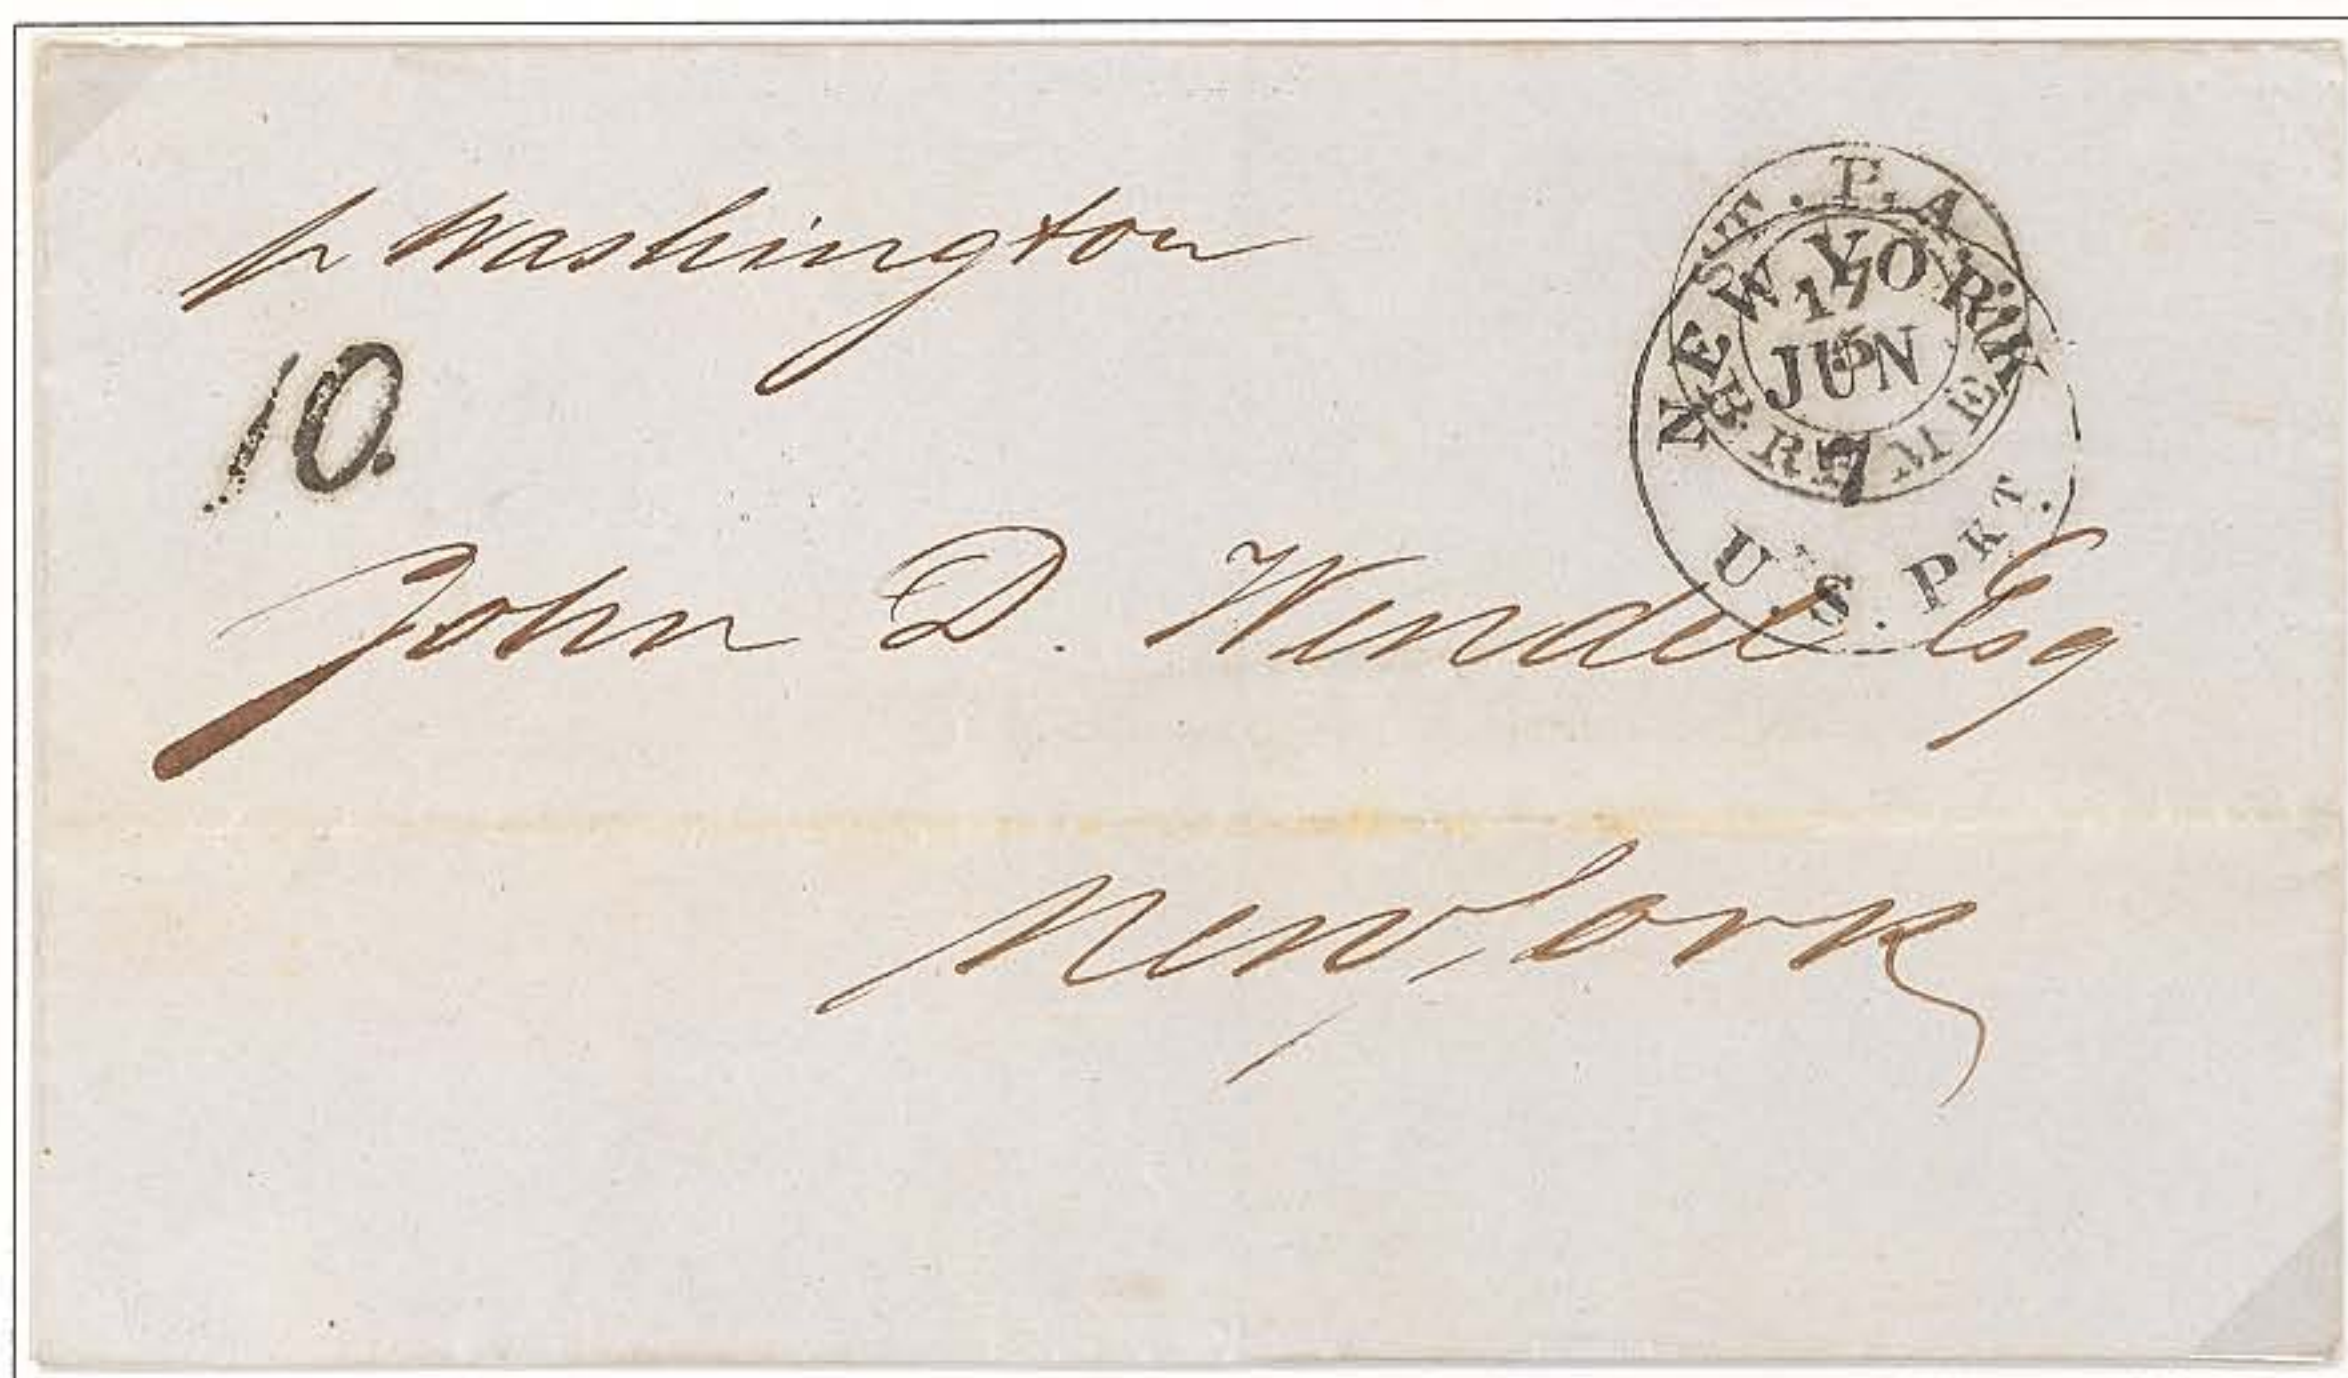 pr Washington
10.
ST. P. A.
17
5
BREMEN
NEW YORK
JUN
7
U.S. PKT.
John D. Wendel Esq
New York